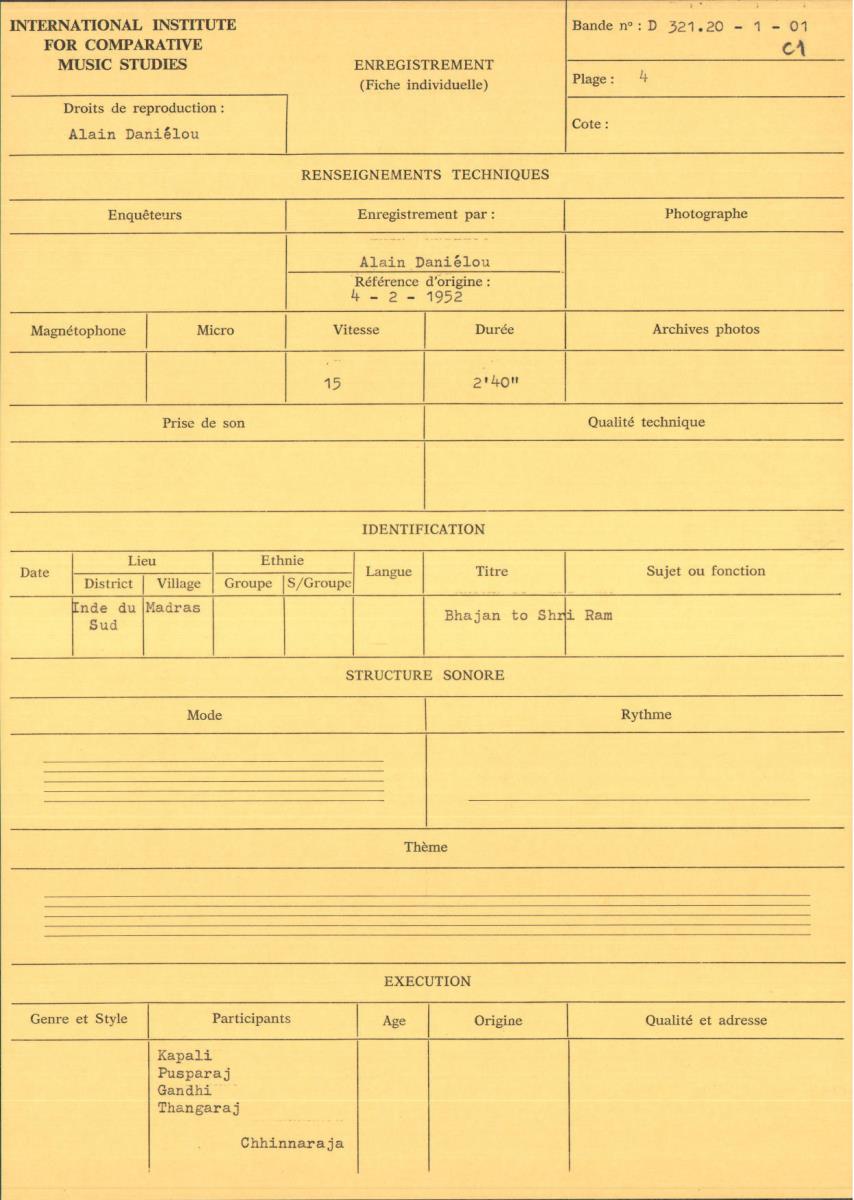 INTERNATIONAL INSTITUTE
FOR COMPARATIVE
MUSIC STUDIES
Droits de reproduction :
Alain Daniélou
ENREGISTREMENT
(Fiche individuelle)
Bande nº : D 321.20 - 1 - 01
C1
Plage : 4
Cote :
RENSEIGNEMENTS TECHNIQUES
Enquêteurs
Enregistrement par :
Photographe
Alain Daniélou
Référence d'origine :
4 - 2 - 1952
Magnétophone Micro Vitesse Durée Archives photos
15 2'40"
Prise de son Qualité technique
IDENTIFICATION
Date Lieu Ethnie Langue Titre Sujet ou fonction
District Village Groupe S/Groupe
Inde du Madras
Sud
Bhajan to Shri Ram
STRUCTURE SONORE
Mode Rythme
Thème
EXECUTION
Genre et Style Participants Age Origine Qualité et adresse
Kapali
Pusparaj
Gandhi
Thangaraj
Chhinnaraja